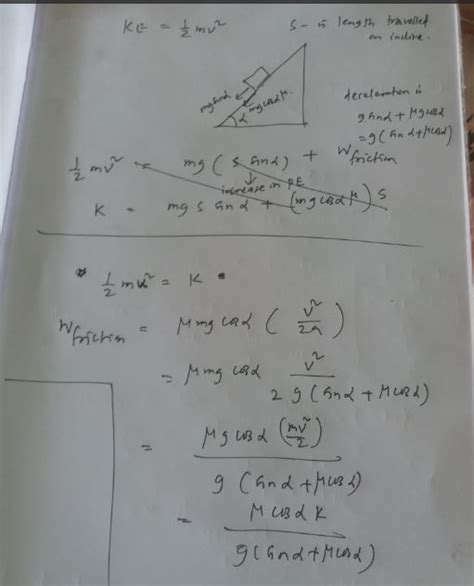 KE = 1/2 mv²
S - is length travelled
on incline.
mg sinα
mg cosα μ
α
deceleration is
g sinα + μg cosα
= g (sinα + μcosα)
1/2 mv² = mg (s sinα) + W friction
↓
increase in PE
K = mg s sinα + (mg cosα μ) s
1/2 mu² = K
W friction = μmg cosα (v²/2a)
= μmg cosα v²/2g(sinα + μcosα)
= μg cosα (mv²/2) / g (sinα + μcosα)
= μcosα K / g(sinα + μcosα)